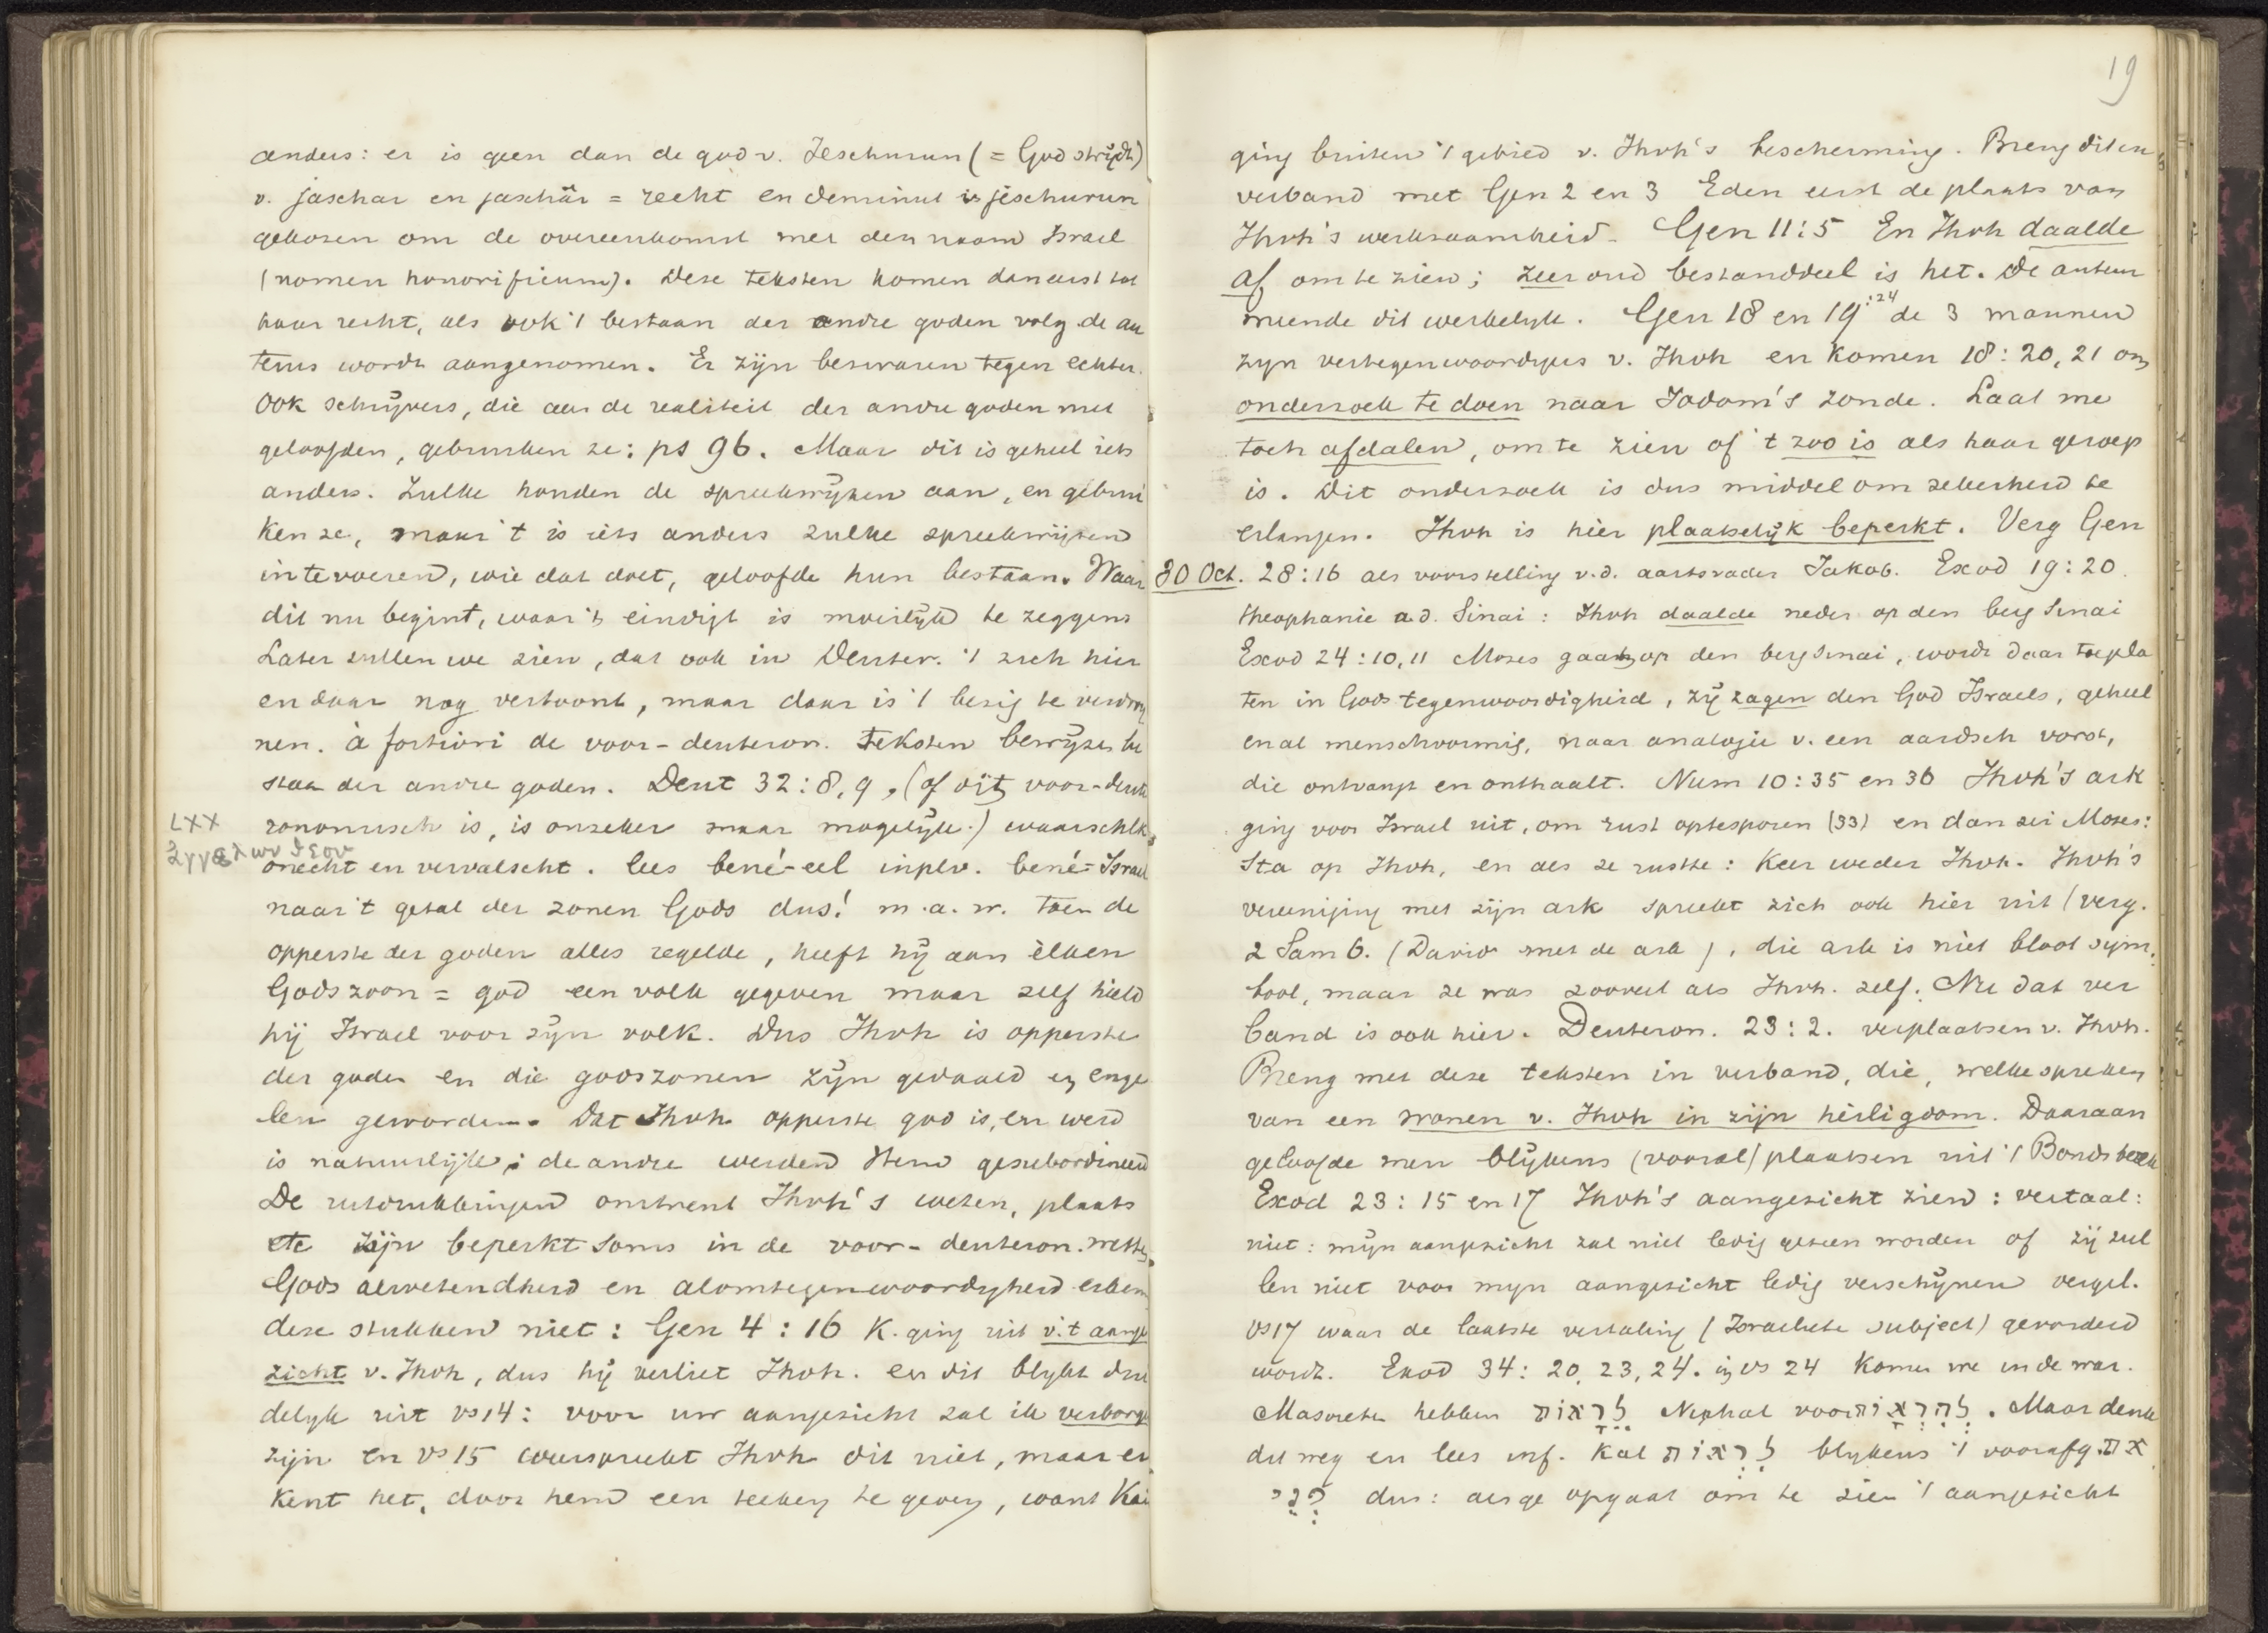 anders: er is geen dan de god v. Jeschurun (= God strijdt)
v. jaschar en jaschâr = recht en deminut is jĕschurun
gekozen om de overeenkomst met den naam Israel
(nomen honorificum). Deze teksten komen dan eerst tot
haar recht, als ook 't bestaan der andre goden volg. de au
teurs wordt aangenomen. Er zijn bezwaren tegen echter.
Ook schrijvers, die aan de realiteit der andre goden niet
geloofden, gebruiken ze: ps 96. Maar dit is geheel iets
anders. Zulke houden de spreekwijzen aan, en gebrui
ken ze, maar 't is iets anders zulke spreekwijzen
in te voeren, wie dat doet, geloofde hun bestaan. Waar
dit nu begint, waar 't eindigt is moeilijk te zeggen
Later zullen we zien, dat ook in Deuter. 't zich hier
en daar nog vertoont, maar daar is 't bezig te verdwij
nen. à fortiori de voor-deuteron. teksten bewijzen be
staan der andre goden. Deut 32:8,9, (of dit voor-deute
ronomisch is, is onzeker maar mogelijk.) waarschlk
LXX
ἀγγέλων θεου
onecht en vervalscht. lees bené-eel inplv. bené-Israel
naar 't getal der zonen Gods dus! m.a.w. toen de
opperste der goden alles regelde, heeft hij aan èlken
Gods zoon = god een volk gegeven maar zelf hield
hij Israel voor zijn volk. Dus Jhvh is opperste
der goden en die godszonen zijn gedaald en enge
len geworden. Dat Jhvh opperste god is, en werd
is natuurlijk; de andre werden Hem gesubordineerd
De uitdrukkingen omtrent Jhvh's wezen, plaats
etc zijn beperkt soms in de voor-deuteron. wetten.
Gods alwetendheid en alomtegenwoordigheid erken
deze stukken niet: Gen 4:16 K. ging uit v. 't aange
zicht v. Jhvh, dus hij verliet Jhvh. en dit blijkt dui
delijk uit vs 14: voor uw aangezicht zal ik verborge
zijn en vs 15 weerspreekt Jhvh dit niet, maar er
kent het, door hem een teeken te geven, want Kai
19
ging buiten 't gebied v. Jhvh's bescherming. Breng dit in
verband met Gen 2 en 3 Eden eerst de plaats van
Jhvh's werkzaamheid. Gen 11:5 En Jhvh daalde
af om te zien; zeer oud bestanddeel is het. De auteur
meende dit werkelijk. Gen 18 en 19:24 de 3 mannen
zijn vertegenwoordigers v. Jhvh en komen 18:20,21 om
onderzoek te doen naar Sodom's zonde. Laat me
toch afdalen, om te zien of 't zoo is als haar geroep
is. Dit onderzoek is dus middel om zekerheid te
erlangen. Jhvh is hier plaatselijk beperkt. Verg Gen
30 Oct. 28:16 als voorstelling v.d. aartsvader Jakob. Exod 19:20.
theophanie a.d. Sinai: Jhvh daalde neder op den berg Sinai
Exod 24:10,11 Mozes gaat op den berg Sinai, wordt daar toegela
ten in Gods tegenwoordigheid, zij zagen den God Israels, geheel
en al menschvormig, naar analogie v. een aardsch vorst,
die ontvangt en onthaalt. Num 10:35 en 36 Jhvh's ark
ging voor Israel uit, om rust optesporen (33) en dan zei Mozes:
Sta op Jhvh, en als ze rustte: Keer weder Jhvh. Jhvh's
vereeniging met zijn ark spreekt zich ook hier uit (verg.
2 Sam 6. (David met de ark), die ark is niet bloot sym
bool, maar ze was zooveel als Jhvh. zelf. Nu dat ver
band is ook hier. Deuteron. 23:2. verplaatsen v. Jhvh.
Breng met deze teksten in verband, die, welke spreken
van een wonen v. Jhvh in zijn heiligdom. Daaraan
geloofde men blijkens (vooral) plaatsen uit 't Bondsboek
Exod 23:15 en 17 Jhvh's aangezicht zien: vertaal:
niet: mijn aangezicht zal niet ledig gezien worden of zij zul
len niet voor mijn aangezicht ledig verschijnen vergel.
vs 17 waar de laatste vertaling (Israeliete subject) gevorderd
wordt. Exod 34:20,23,24. in vs 24 komen we in de war.
Masoreten hebben לֵרָאוֹת Niphal voor לְהֵרָאוֹת. Maar denk
dit weg en lees inf. Kal לִרְאוֹת blijkens 't voorafg. את
פְּנֵי dus: als ge opgaat om te zien 't aangezicht